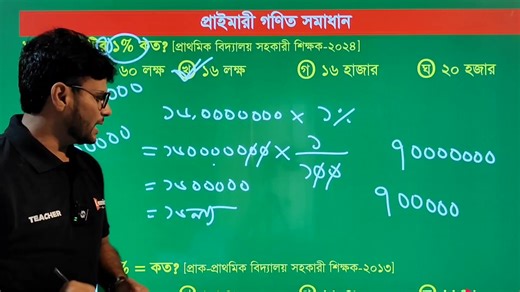 প্রাইমারী গণিত সমাধান
১% কত? [প্রাথমিক বিদ্যালয় সহকারী শিক্ষক-২০২৪]
৬০ লক্ষ খ ১৬ লক্ষ গ ১৬ হাজার ঘ ২০ হজার
০০০
১৬,০০০০০০০ × ১%
০০০০
= ১৬০০০০০০০ × ১/১০০
৭০০০০০০০
= ১৬০০০০০
৭০০০০০
= ১৬ লক্ষ
TEACHER
% = কত? [প্রাক-প্রাথমিক বিদ্যালয় সহকারী শিক্ষক-২০১৩]